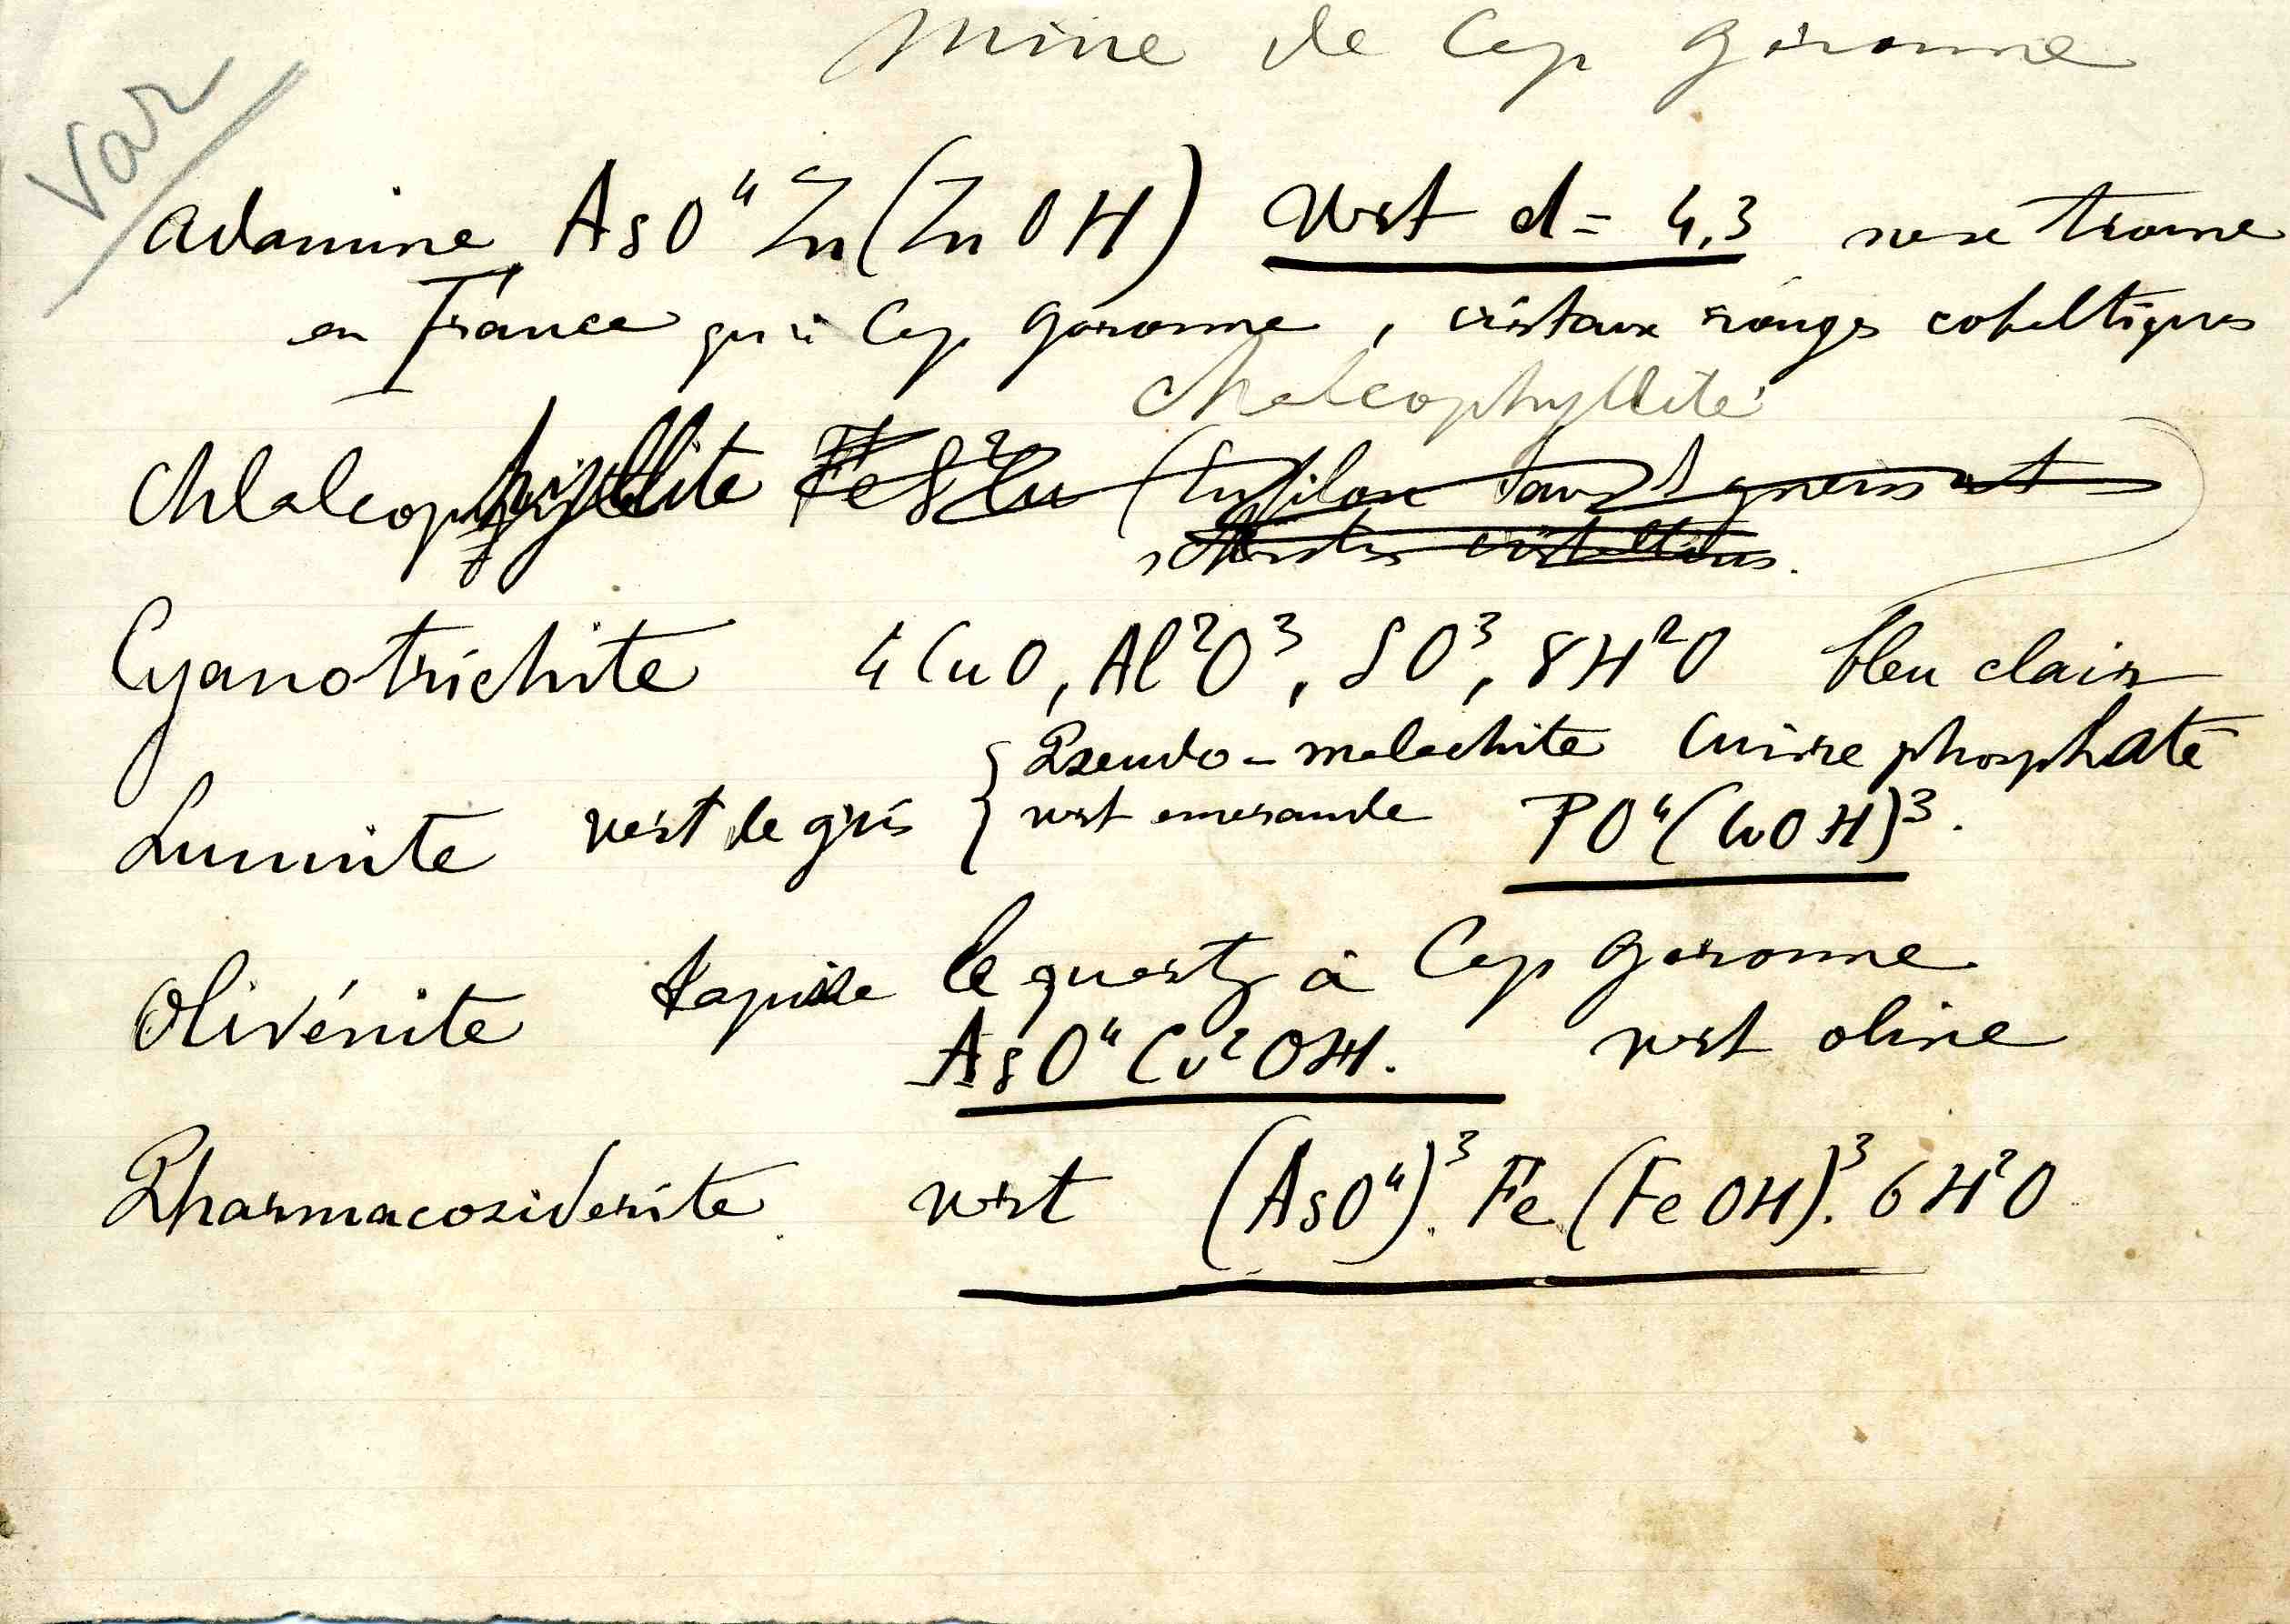 Mine de Cap Garonne
Var
Adamine AsO⁴Zn(ZnOH) Vert d = 4,3 ne se trouve
en France qu'à Cap Garonne, cristaux rouges cobaltiques
Chalcophyllite
Chlalcophyllite FeS²Cu (En filons dans gneiss et
schistes cristallins.
Cyanotrichite 4CuO, Al²O³, SO³, 8H²O bleu clair
Pseudo-malachite Cuivre phosphaté
Lunnite vert de gris { vert emeraude PO⁴(CuOH)³.
Olivénite tapisse le quartz à Cap Garonne
AsO⁴Cu²OH. vert olive
Pharmacosiderite vert (AsO⁴)³.Fe(FeOH)³.6H²O